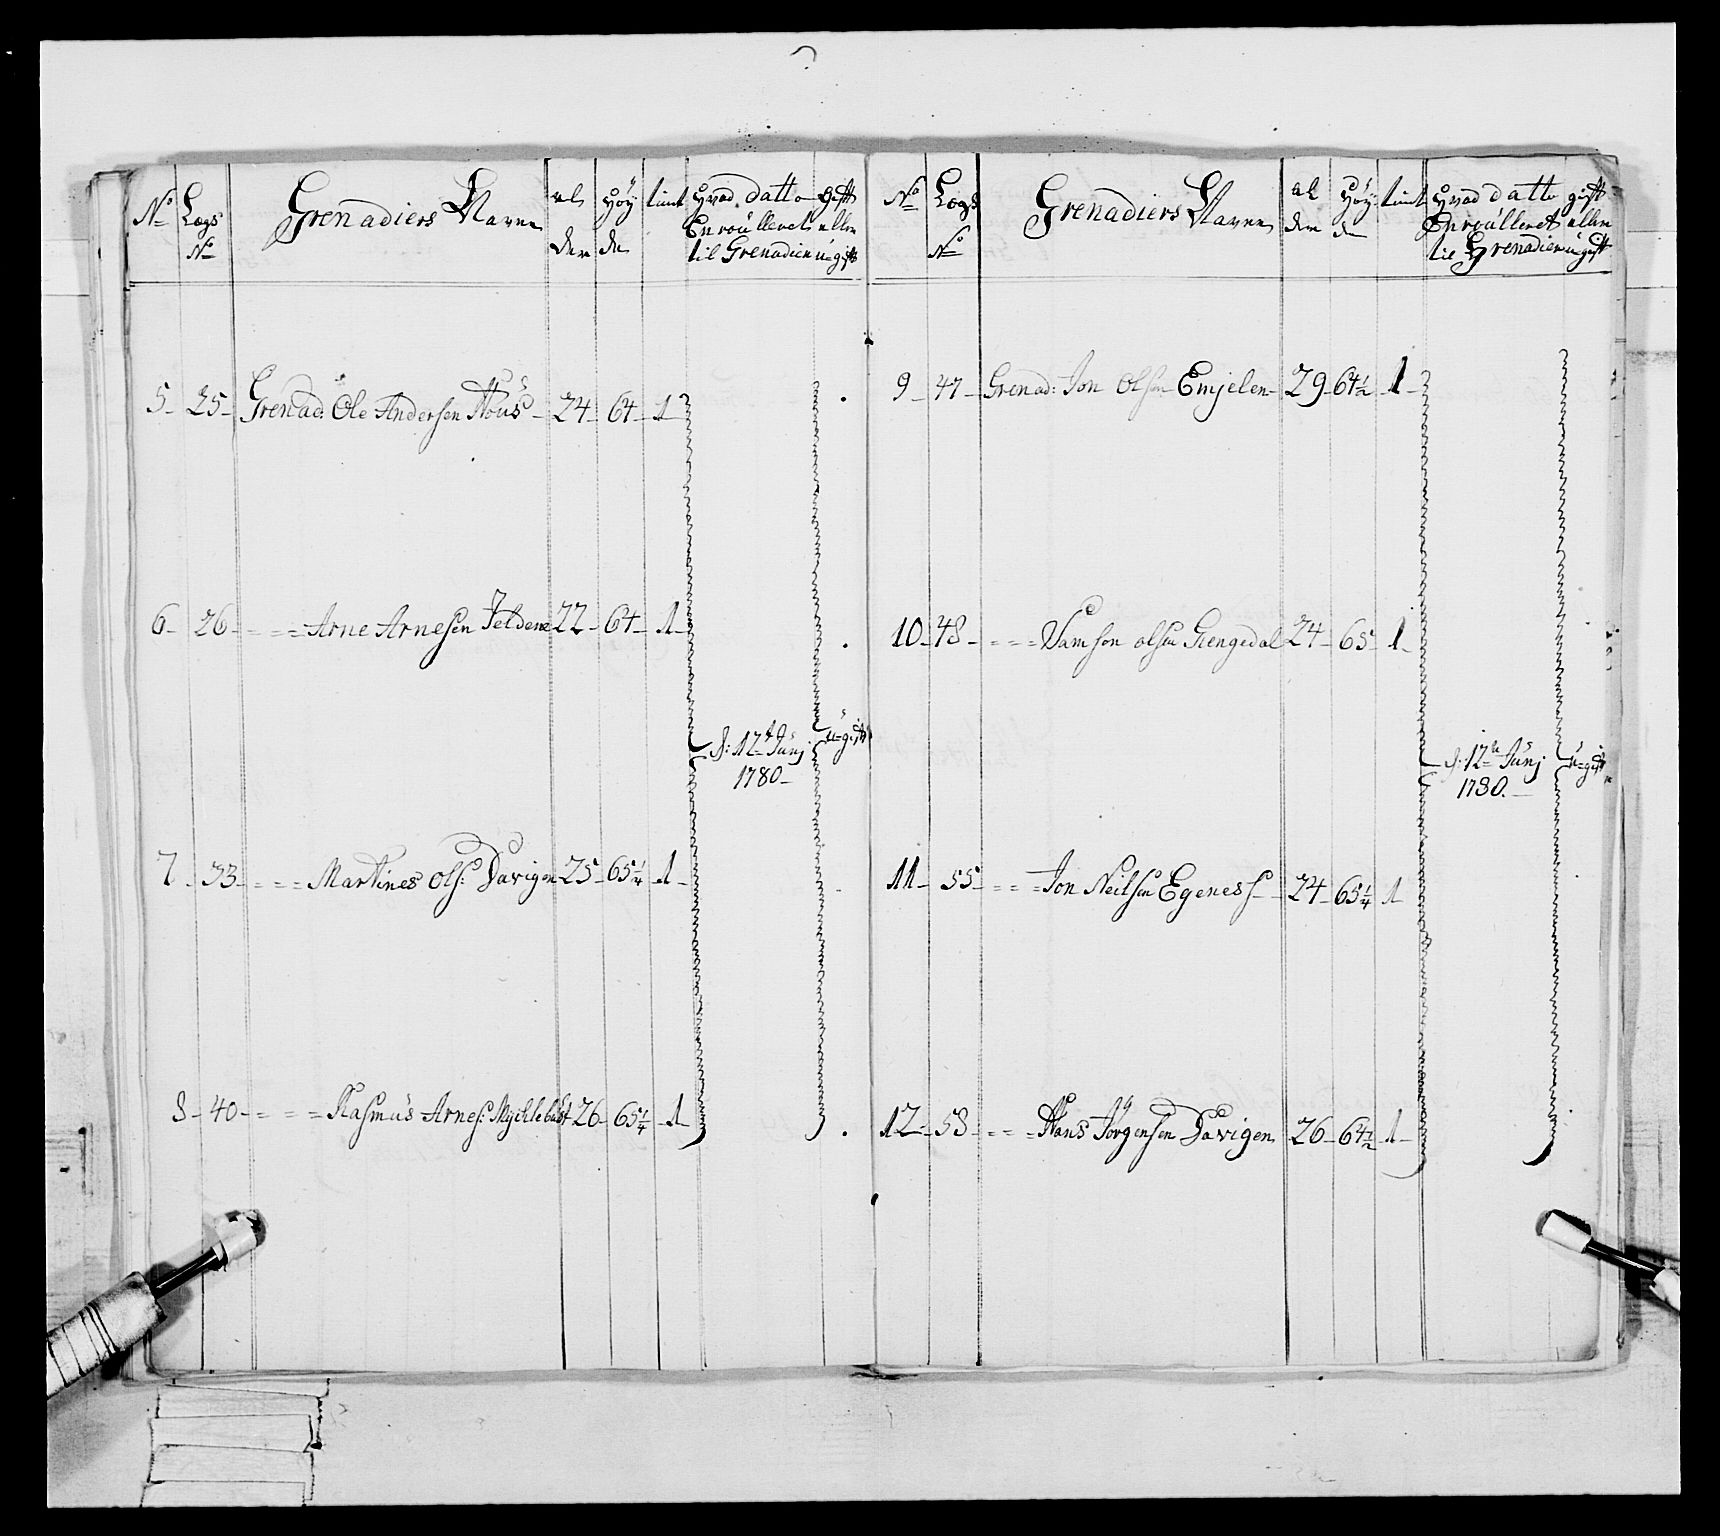 No Lægs No Grenadiers Navne al der Høy de timt Hvad datto Enroulleret til Grenadier gift eller ugift
5 - 25 - Grenad: Ole Andersen Hous - 24 - 64 - 1
6 - 26 - - - = Arne Arnesen Felden 22 - 64 - 1
d: 12te Junj u=gift
1780 -
7 - 33 - - - = Martines Ols: Davigen 25 - 65 1/4 - 1
8 - 40 - = = = Rasmus Arnes: Myclebust 26 - 65 1/4 - 1
No Lægs No Grenadiers Navne al der Høy de timt Hvad datto Enroulleret til Grenadier gift eller ugift
9 - 47 - Grenad: Jon Olsen Emjelen - 29 - 64 1/2 - 1
10 - 48 - - = = Samson olsen Giengedal 24 - 65 - 1
d: 12te Junj u=gift
1780. -
11 - 55 - = = = Jon Neilsen Egeness - 24 - 65 1/4 - 1
12 - 58 - = = = Hans Jörgensen Davigen 26 - 64 1/2 - 1